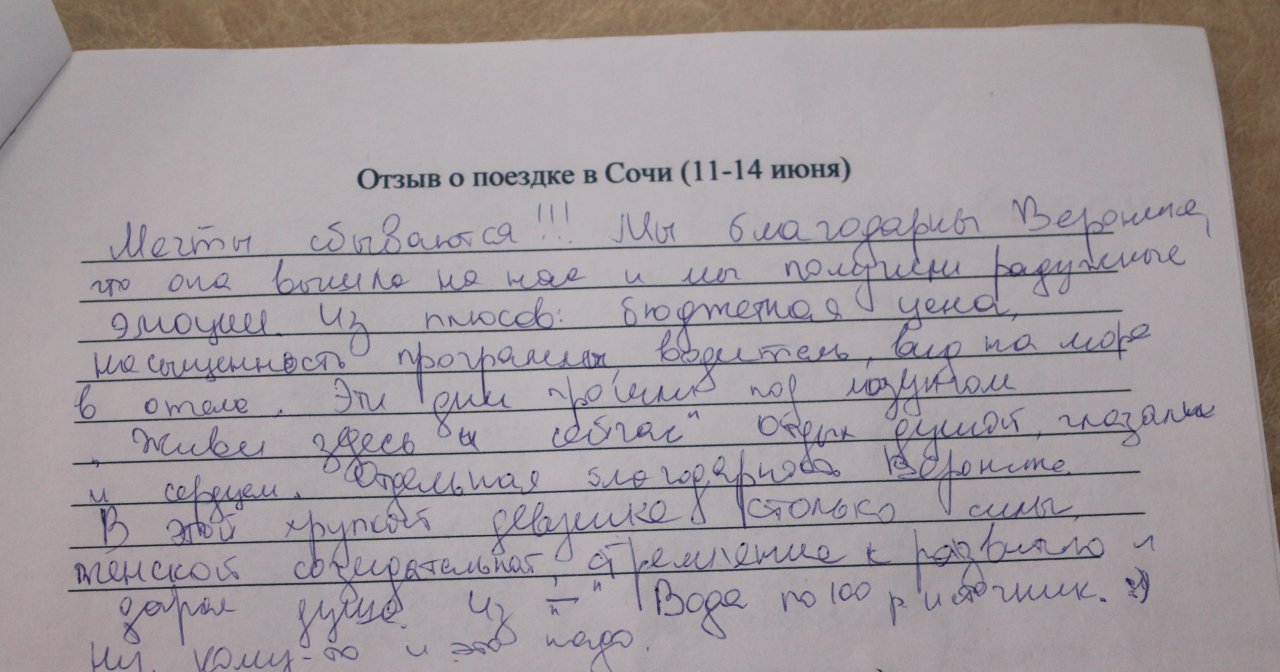 Отзыв о поездке в Сочи (11-14 июня)
Мечты сбываются!!! Мы благодарны Веронике,
что она вышла на нас и мы получили радужные
эмоции. Из плюсов: бюджетная цена,
насыщенность программы, водитель, вид на море
в отеле. Эти дни прошли под лозунгом
„Живи здесь и сейчас" Отдых душой, глазами
и сердцем. Отдельная благодарность Веронике
В этой хрупкой девушке столько силы,
женской созидательной, стремление к развитию и
душе. Из "–" Вода по 100 р источник. :)
Ну, кому-то и это надо.